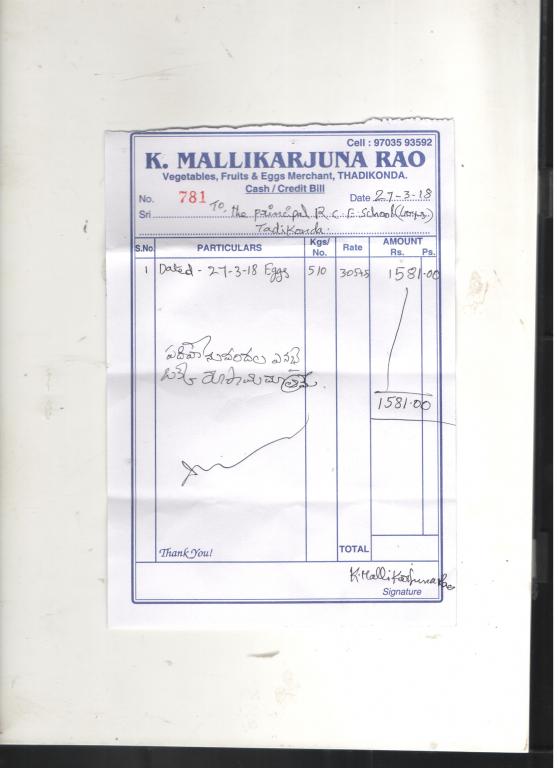 Cell : 97035 93592
K. MALLIKARJUNA RAO
Vegetables, Fruits & Eggs Merchant, THADIKONDA.
Cash / Credit Bill
No. 781 Date 27-3-18
Sri To, the principal R C E School
Tadikonda.
S.No. PARTICULARS Kgs/ No. Rate AMOUNT Rs. Ps.
1 Dated - 27-3-18 Eggs 510 1581.00
పదిహేను వందల ఎనభై
ఒక్క రూపాయి మాత్రమే.
1581.00
Thank You! TOTAL
K. Mallikarjuna Rao
Signature